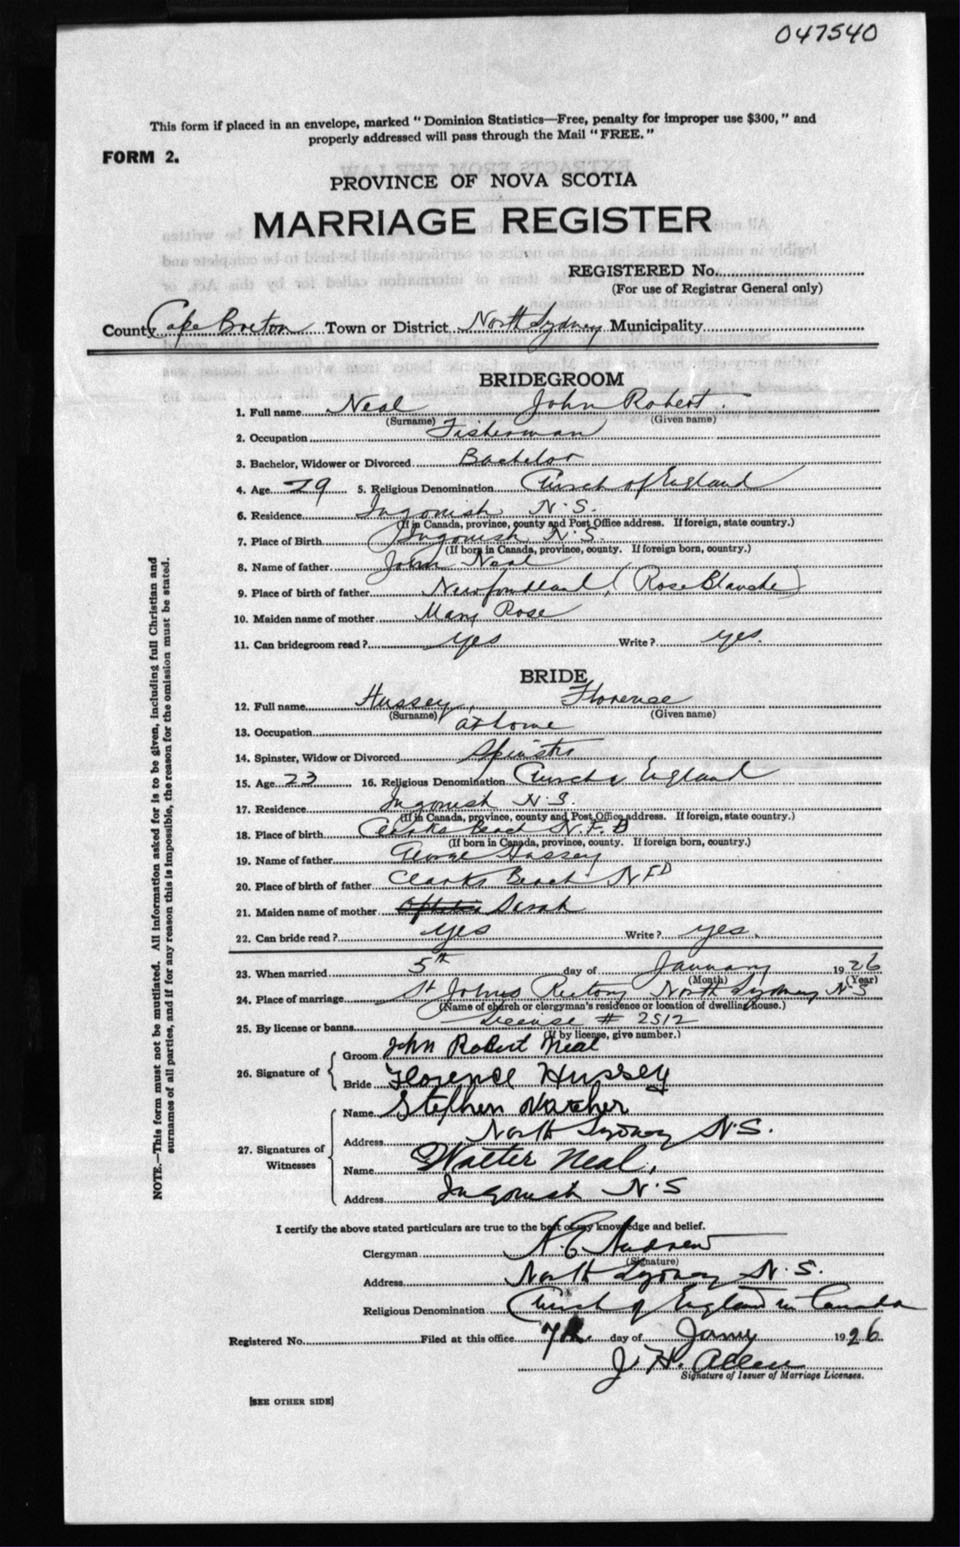 047540
This form if placed in an envelope, marked "Dominion Statistics—Free, penalty for improper use $300," and
properly addressed will pass through the Mail "FREE."
FORM 2.
PROVINCE OF NOVA SCOTIA
MARRIAGE REGISTER
REGISTERED No.
(For use of Registrar General only)
County Cape Breton Town or District North Sydney Municipality
BRIDEGROOM
1. Full name Neal John Robert
(Surname) (Given name)
2. Occupation Fisherman
3. Bachelor, Widower or Divorced Bachelor
4. Age 29 5. Religious Denomination Church of England
6. Residence Ingonish N.S.
(If in Canada, province, county and Post Office address. If foreign, state country.)
7. Place of Birth Ingonish N.S.
(If born in Canada, province, county. If foreign born, country.)
8. Name of father John Neal
9. Place of birth of father Newfoundland, (Rose Blanche)
10. Maiden name of mother Mary Rose
11. Can bridegroom read? yes Write? yes.
BRIDE
12. Full name Hussey, Florence
(Surname) (Given name)
13. Occupation at home
14. Spinster, Widow or Divorced Spinster
15. Age 23 16. Religious Denomination Church of England
17. Residence Ingonish N.S.
(If in Canada, province, county and Post Office address. If foreign, state country.)
18. Place of birth Clarks Beach N.F.D
(If born in Canada, province, county. If foreign born, country.)
19. Name of father George Hussey
20. Place of birth of father Clarks Beach NFD
21. Maiden name of mother Sarah
22. Can bride read? yes Write? yes.
23. When married 5th day of January 1926
(Month) (Year)
24. Place of marriage St Johns Rectory North Sydney N.S
(Name of church or clergyman's residence or location of dwelling house.)
25. By license or banns License # 2512
(If by license, give number.)
26. Signature of Groom John Robert Neal
Bride Florence Hussey
27. Signatures of Witnesses Name Stephen
Address North Sydney N.S.
Name Walter Neal,
Address Ingonish N.S
I certify the above stated particulars are true to the best of my knowledge and belief.
Clergyman A. E. Andrew
(Signature)
Address North Sydney N.S.
Religious Denomination Church of England in Canada
Registered No. Filed at this office 7th day of Jany 1926
J. H. Allen
Signature of Issuer of Marriage Licenses.
[SEE OTHER SIDE]
NOTE.—This form must not be mutilated. All information asked for is to be given, including full Christian and
surnames of all parties, and if for any reason this is impossible, the reason for the omission must be stated.